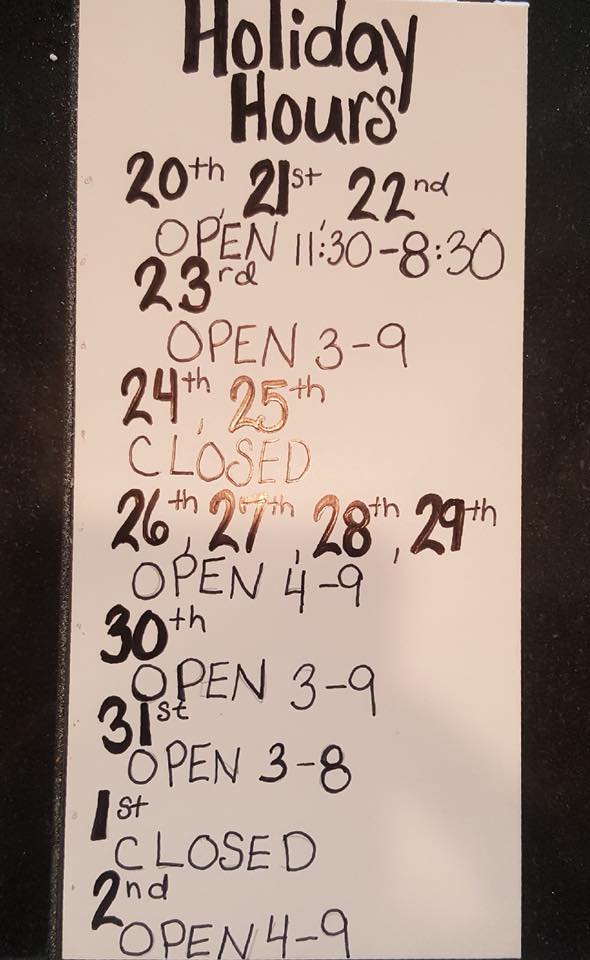 Holiday
Hours
20th, 21st, 22nd
OPEN 11:30-8:30
23rd
OPEN 3-9
24th, 25th
CLOSED
26th, 27th, 28th, 29th
OPEN 4-9
30th
OPEN 3-9
31st
OPEN 3-8
1st
CLOSED
2nd
OPEN 4-9